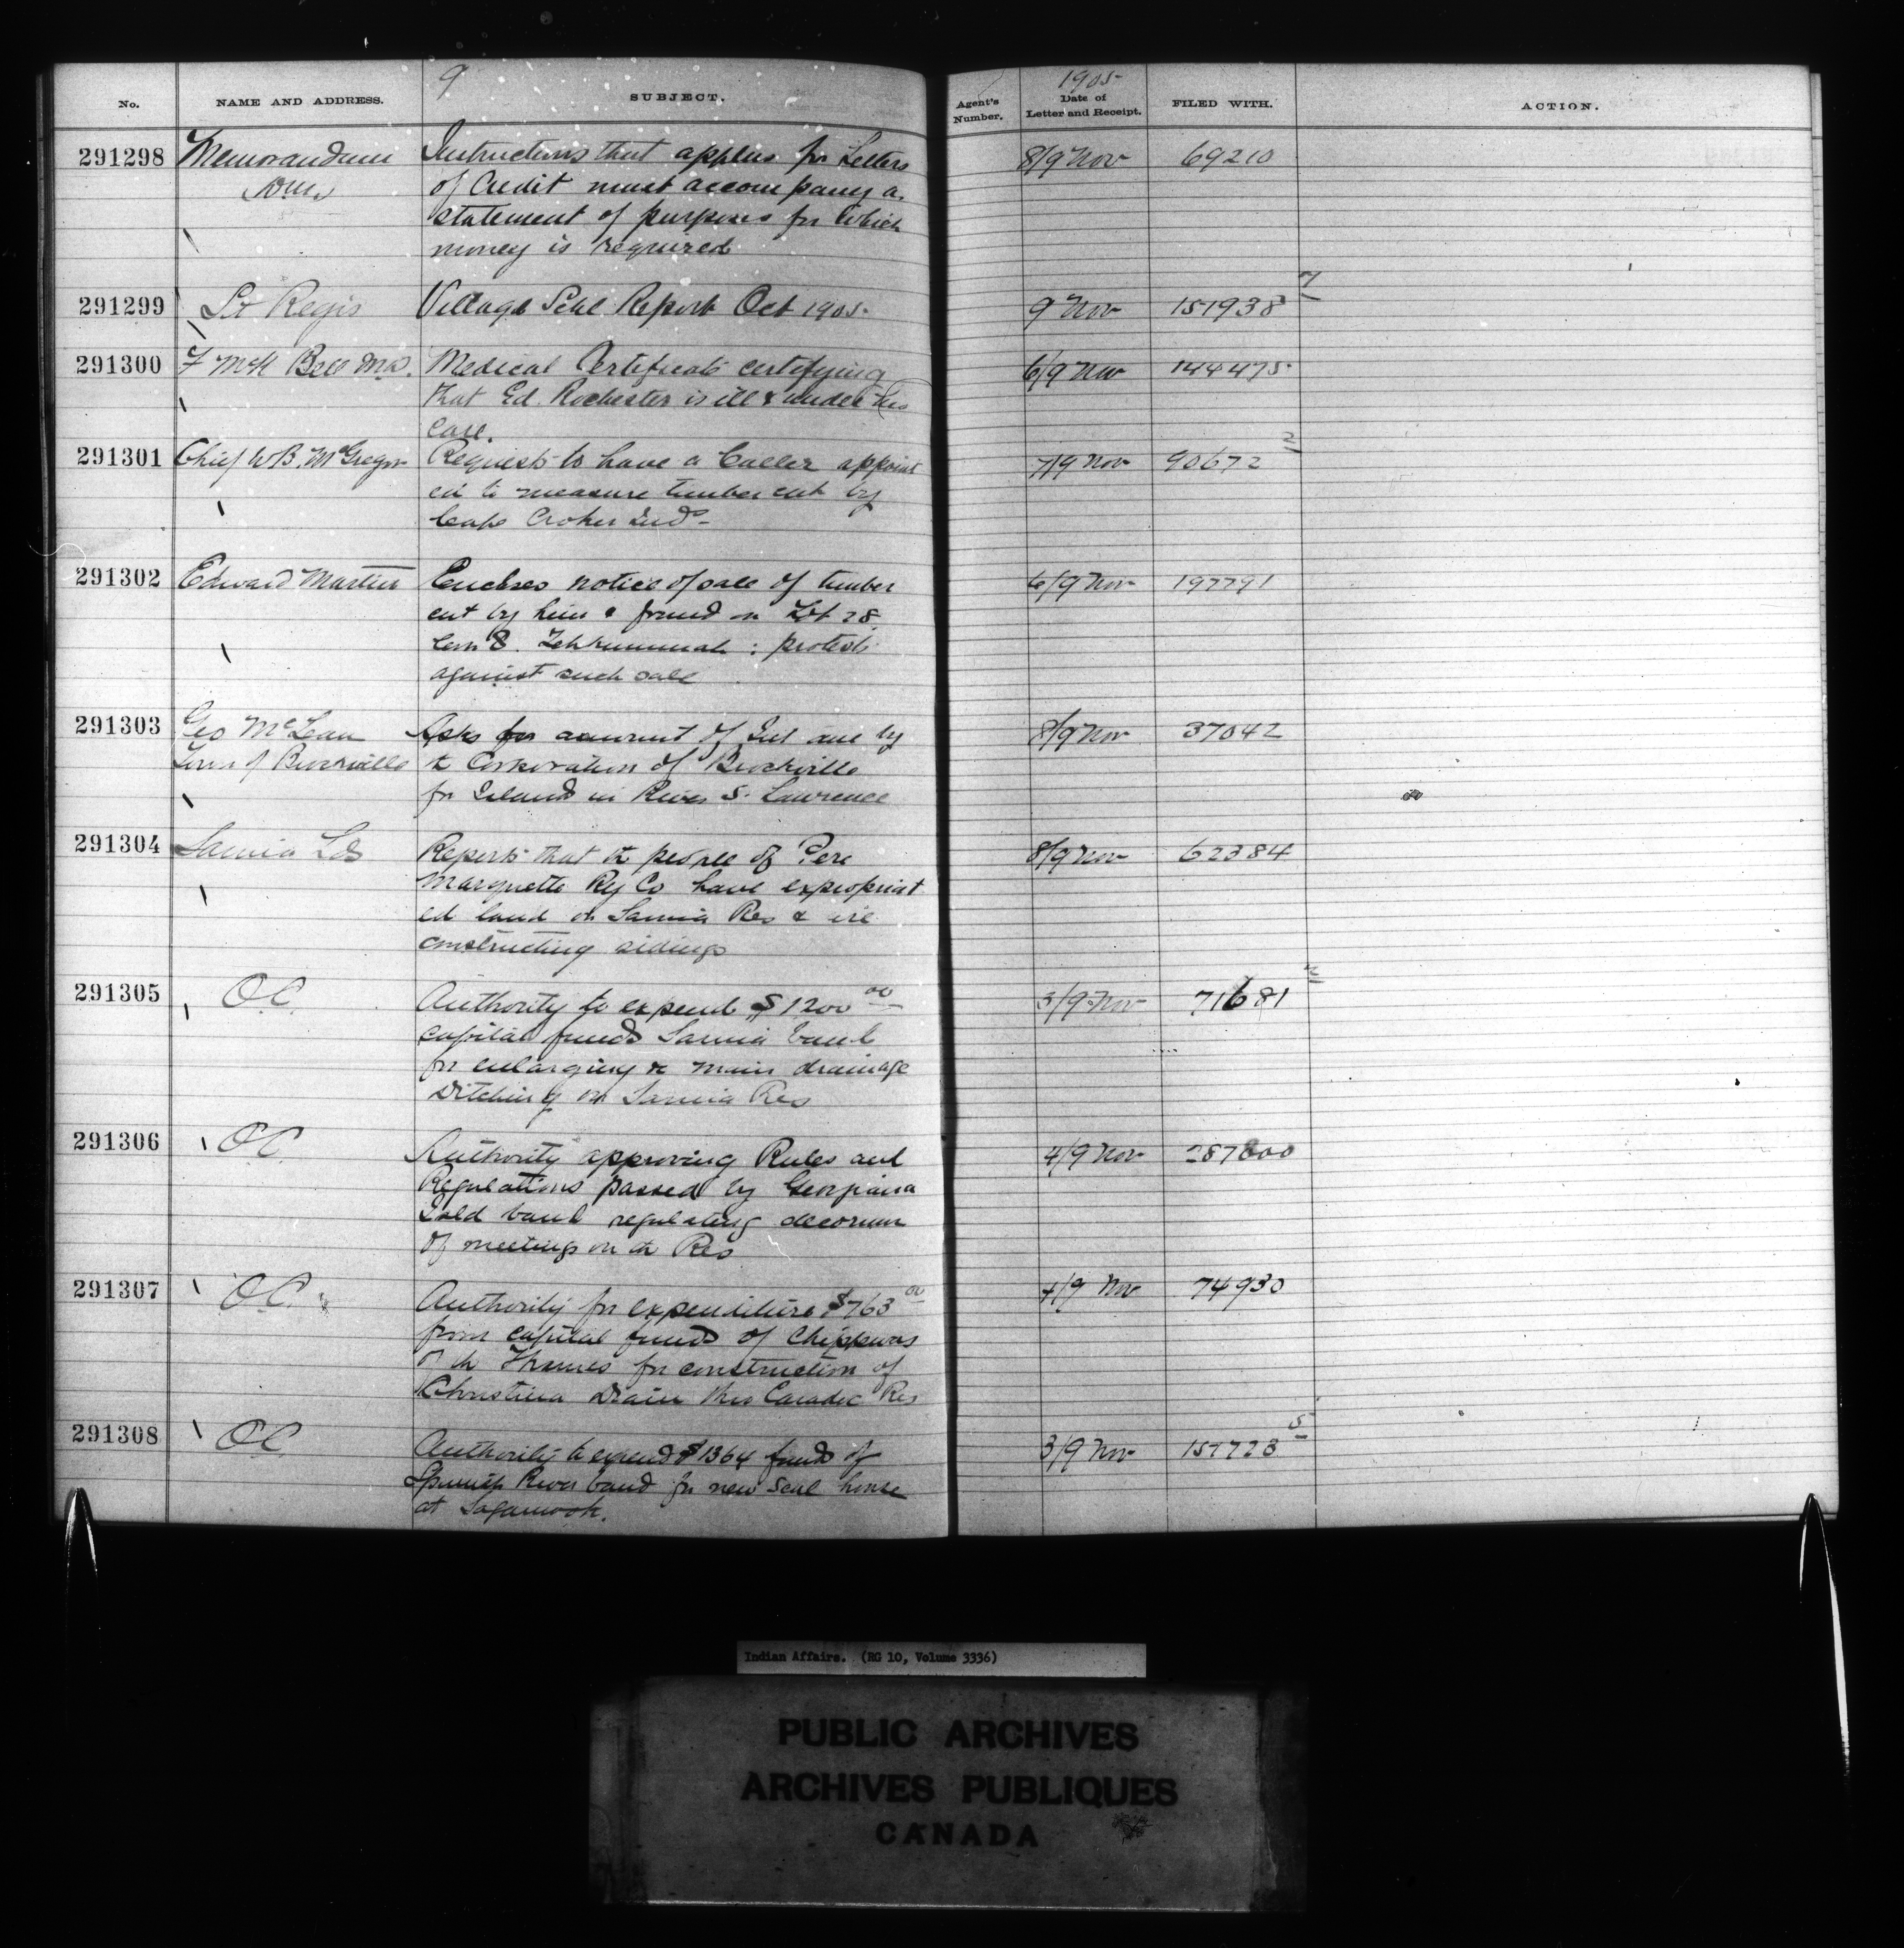 9
1905
No. NAME AND ADDRESS. SUBJECT. Agent's Number. Date of Letter and Receipt. FILED WITH. ACTION.
291298 Memorandum Instructions that applns for Letters 8/9 Nov 69210
of Credit must accompany a
statement of purposes for which
money is required
291299 St Regis Village Schl Report Oct 1905 9 Nov 151938 7
291300 F McK Bell MD. Medical Certificate certifying 6/9 Nov 144475
that Ed. Rochester is ill & under his
care.
291301 Chief W.B. McGregor Requests to have a Culler appoint 7/9 Nov 90672 2
ed to measure timber cut by
Cape Croker Inds
291302 Edward Martin Encloses notice of sale of timber 6/9 Nov 197791
cut by him & found on Lot 28
Con 8. Tehkummah : protests
against such sale
291303 Geo McLean Asks for amount of Int due by 8/9 Nov 37042
Town of Brockville t Corporation of Brockville
for Islands in River S. Lawrence
291304 Sarnia Reports that th people of Pere 8/9 Nov 62384
Marquette Ry Co have expropriat
ed land on Sarnia Res &
constructing sidings
291305 O.C. Authority to expend $1200 00 3/9 Nov 71681 2
capital funds Sarnia band
for enlarging & main drainage
ditching on Sarnia Res
291306 O.C. Authority approving Rules and 4/9 Nov 287000
Regulations passed by Georgina
Isld band regulating decorum
of meetings on th Res
291307 O.C. Authority for expenditure $763 00 4/9 Nov 74930
from capital funds of Chippewas
o th Thames for construction of
Christina Drain thro Caradoc Res
291308 O.C. Authority to expend $1364 funds of 3/9 Nov 157723 5
Spanish River band for new Schl house
at Sagamook.
Indian Affairs. (RG 10, Volume 3336)
PUBLIC ARCHIVES
ARCHIVES PUBLIQUES
CANADA